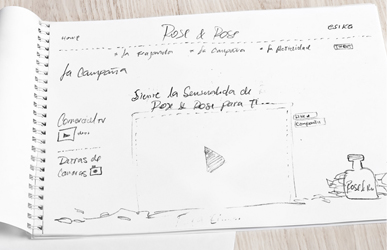 Rose & Rose
esika
Home
• La Fragancia • La Campaña • La Actividad
La Campaña
Siente la Sensualidad de
Rose & Rose para Ti...
Comercial TV
Detras de
Camaras
Like
Compartir
Rose & Ro